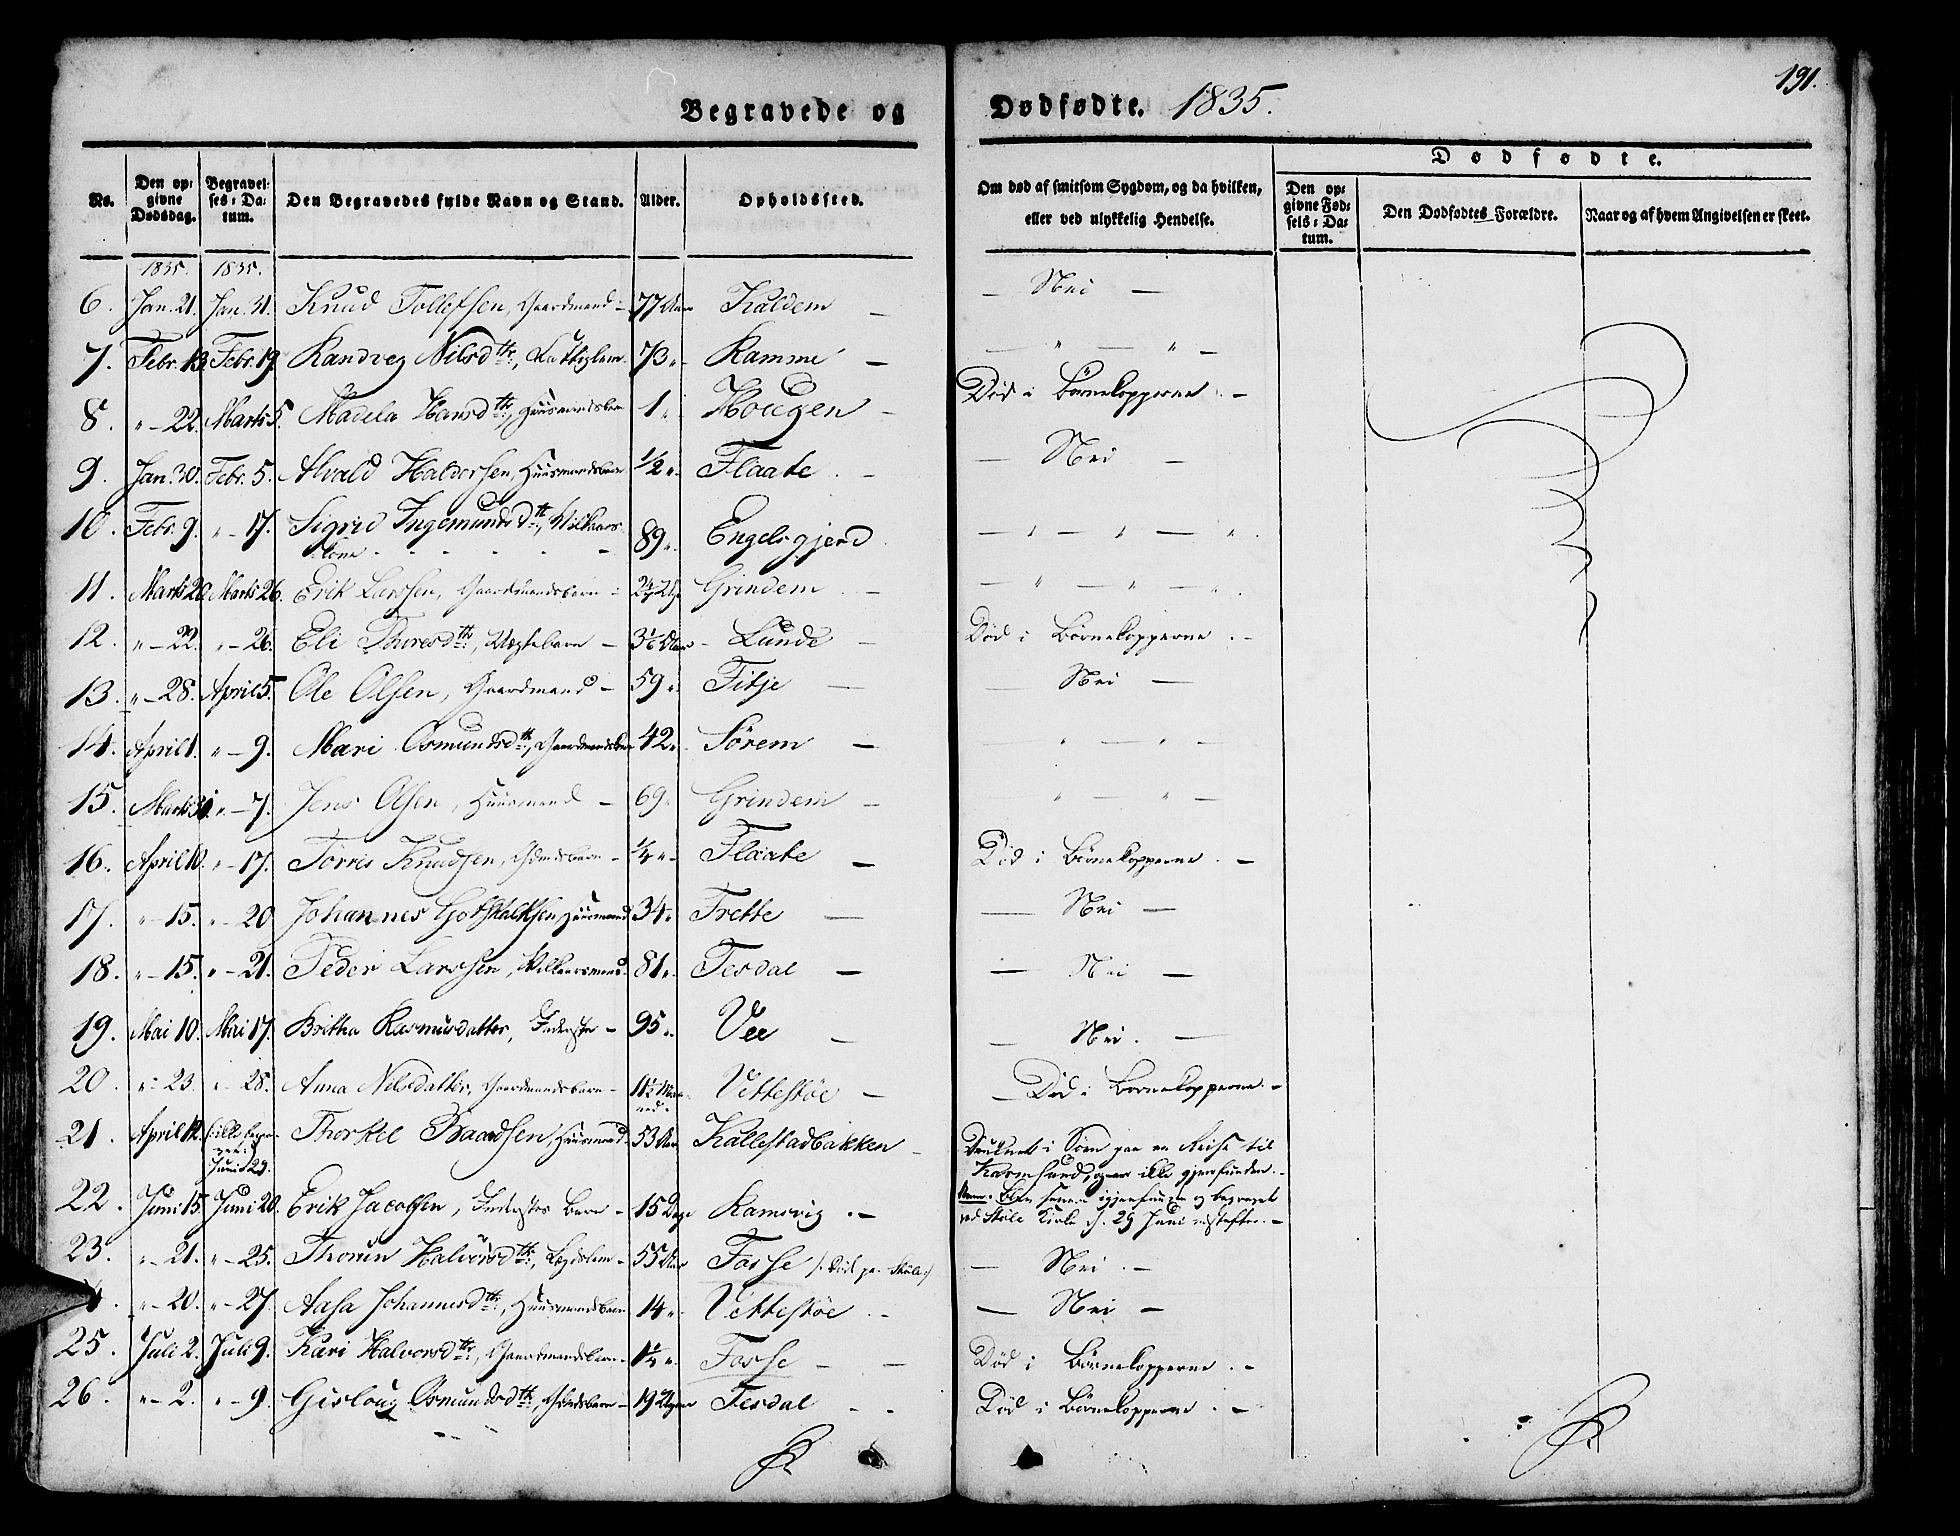 191.
Begravede og Dødfødte. 1835.
No. | Den opgivne Dødsdag. | Begravelses-Datum. | Den Begravedes fulde Navn og Stand. | Alder. | Opholdssted. | Om død af smitsom Sygdom, og da hvilken, eller ved ulykkelig Hendelse. | Dødfødte. | Den opgivne Fødsels-Datum. | Den Dødfødtes Forældre. | Naar og af hvem Angivelsen er skeet.
1835. 1835.
6. Jan. 21. Jan. 31. Knud Tollefsen, Gaardmand - 77 Aar Kaldem - - Nei -
7. Febr. 13. Febr. 19. Randveg Nilsdtr., 73 " Ramme - - " - " -
8. " - 22. Marts 5. Madela Hansdtr., Huusmandsbarn 1 " Hougen - Død i Børnekopperne. -
9. Jan. 30. Febr. 5. Haldorsen, Huusmandsbarn 1/2 " Flaate. - - Nei -
10. Febr. 9. " - 17. Sigrid Ingemundsdtr., Vilkaars-
kone - - - - - - 89 " Engelsgjerd. - " - " - " - " .
11. Marts 20. Marts 26. Erik Larssen, Gaardmandsbarn - Grindem. - - " - " - " .
12. " - 22. " - 26. Eli Thoresdtr., Uægtebarn - Lunde - Død i Børnekopperne. -
13. " - 28. April 5. Ole Olsen, Gaardmand - 59 " Fitje - - Nei -
14. April 1. " - 9. Mari Osmundsdtr., 42 " Sørem - " - " -
15. Marts 30. " - 7. Jens Olsen, Huusmand - 69 " Grindem - " - " -
16. April 10. " - 17. Torres Knudsen, Gdmdsbarn - 1/4 " - Flaate - Død i Børnekopperne. -
17. " - 15. " - 20. Johannes Gotskalksen, Huusmand 34 " Frette - - Nei -
18. " - 15. " - 21. Peder Larssen, Vilkaarsmand. 81 " Tesdal - - Nei -
19. Mai 10. Mai 17. Britha Rasmusdatter, Inderste - 95 " Vee - - Nei. -
20. " - 23. " - 28. Anna Nilsdatter, Gaardmandsbarn - 11 1/2 Maa-
ned. Vettestøe - - Død i Børnekopperne. -
21. April 12. Juni 29. Thorkil Baardsen, Huusmand - 53 Aar Kallestadbakken - Druknet i Søen paa en Reise til
Karmsund, og er ikke gjenfunden. -
Anm. Blev senere igjenfunden og begravet
ved Skole Kirke d. 29 Juni
22. Juni 15. Juni 20. Erik Jacobsen, Inderstes Barn - 15 Dage Ramsvig. -
23. " - 21. " - 25. Thorun Halvorsdtr., Lægdslem - 55 Aar Fosse - Nei. -
" - 20. " - 27. Aasa Johannesdtr., Huusmandsbarn 14 " Vettestøe. - - Nei -
25. Juli 2. Juli 9. Kari Halvorsdtr., Gaardmandsbarn - 1 1/4 " Fosse - - Død i Børnekopperne. -
26. " - 2. " - 9. Gisloug Osmundsdtr., Gdmdsbarn - 19 Uger Tesdal - - Død i Børnekopperne. -